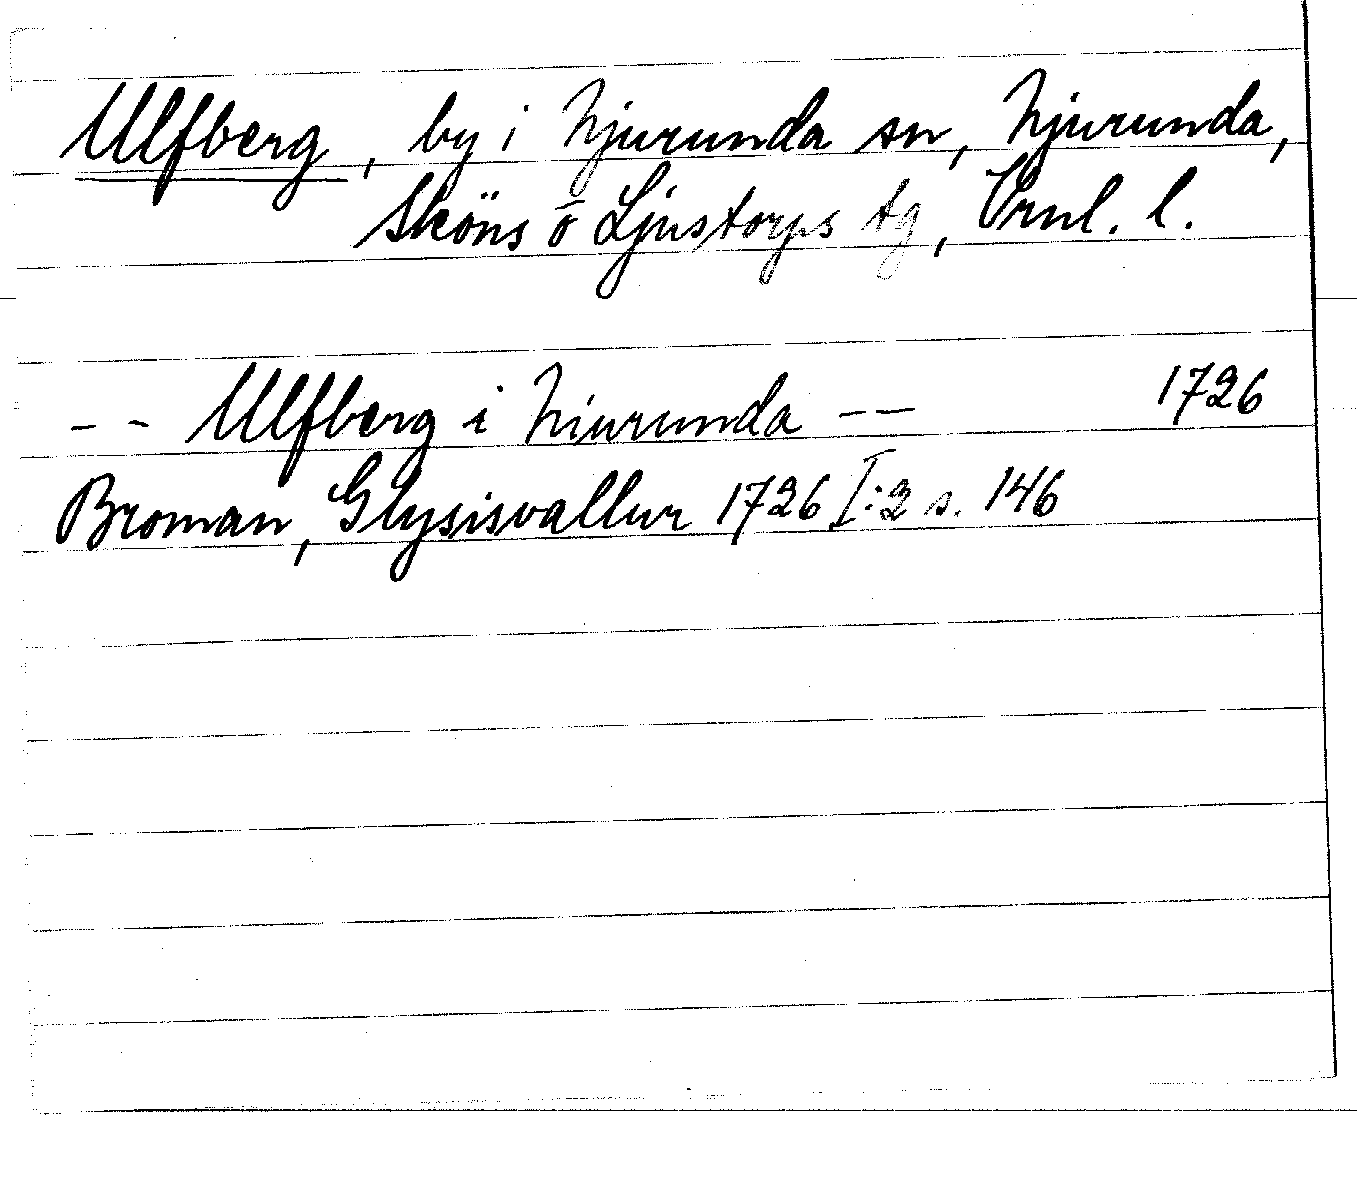 Ulfberg, by i Njurunda sn, Njurunda,
Sköns o Ljustorps tg, Vrnl. l.
- - Ulfberg i Niurunda - - 1726
Broman, Glysisvallur 1726 I:2 s. 146